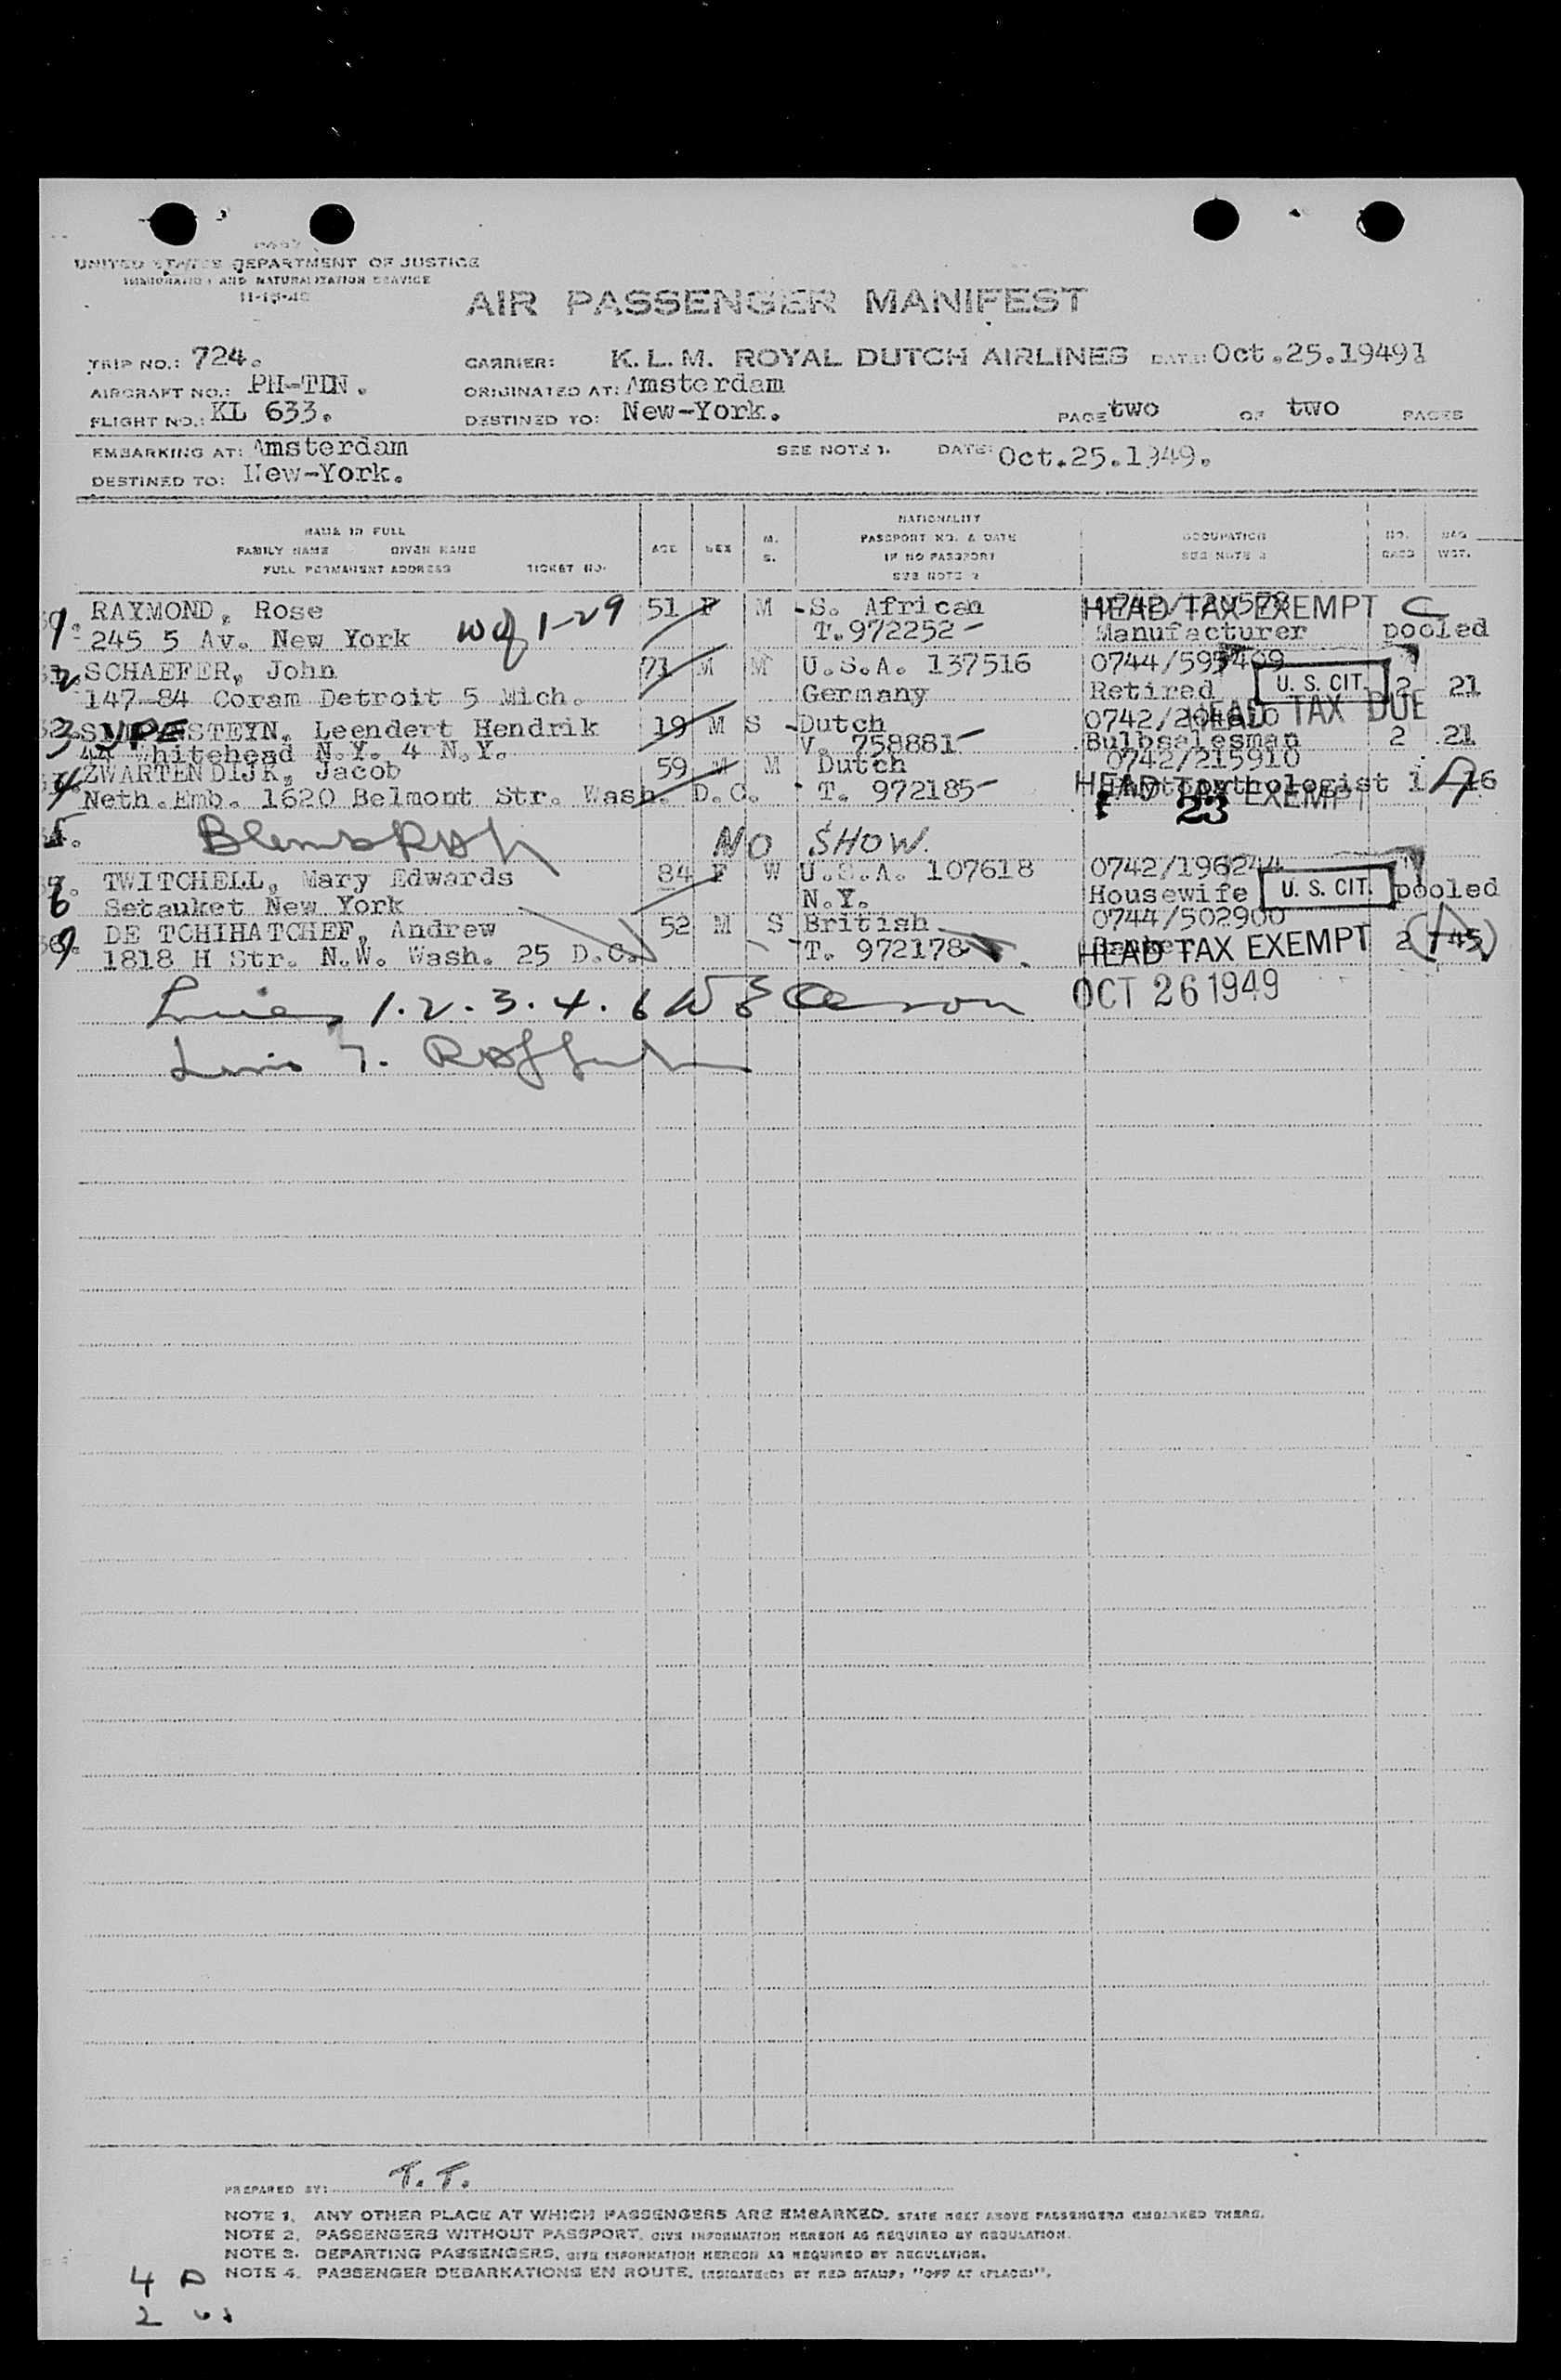 UNITED STATES DEPARTMENT OF JUSTICE
IMMIGRATION AND NATURALIZATION SERVICE
AIR PASSENGER MANIFEST
TRIP NO.: 724.
CARRIER: K.L.M. ROYAL DUTCH AIRLINES DATE: Oct.25.1949
AIRCRAFT NO.: PH-TDN.
ORIGINATED AT: Amsterdam
FLIGHT NO.: KL 633.
DESTINED TO: New-York.
PAGE two OF two PAGES
EMBARKING AT: Amsterdam
SEE NOTE 1. DATE: Oct.25.1949.
DESTINED TO: New-York.
NAME IN FULL
FAMILY NAME GIVEN NAME
FULL PERMANENT ADDRESS TICKET NO.
AGE SEX M. S.
NATIONALITY
PASSPORT NO. & DATE
IF NO PASSPORT
SEE NOTE 2
OCCUPATION
SEE NOTE 3
NO. BAGS
BAG WGT.
1. RAYMOND, Rose 51 F M S. African HEAD TAX EXEMPT C
245 5 Av. New York 1-29 T.972252 Manufacturer pooled
2 SCHAEFER, John 71 M M U.S.A. 137516 0744/595409
147-84 Coram Detroit 5 Mich. Germany Retired U. S. CIT. 2 21
HEAD TAX DUE
3 STEYN, Leendert Hendrik 19 M S Dutch
Whitehead N.Y. 4 N.Y. V. 758881 Bulbsalesman 2 21
4 ZWARTENDIJK, Jacob 59 M M Dutch 0742/215910
Neth.Emb. 1620 Belmont Str. Wash. D.C. T. 972185 HEAD TAX EXEMPT 1 A 16
23
5. NO SHOW.
6 TWITCHELL, Mary Edwards 84 F W U.S.A. 107618
Setauket New York N.Y. Housewife U. S. CIT. pooled
DE TCHIHATCHEF, Andrew 52 M S British 0744/502900
1818 H Str. N.W. Wash. 25 D.C. T. 972178 HEAD TAX EXEMPT 2 A 45
OCT 26 1949
Lines 1.2.3.4.6
7.
PREPARED BY: T.T.
NOTE 1. ANY OTHER PLACE AT WHICH PASSENGERS ARE EMBARKED, STATE NEXT ABOVE PASSENGERS EMBARKED THERE.
NOTE 2. PASSENGERS WITHOUT PASSPORT, GIVE INFORMATION HEREON AS REQUIRED BY REGULATION.
NOTE 3. DEPARTING PASSENGERS, GIVE INFORMATION HEREON AS REQUIRED BY REGULATION.
NOTE 4. PASSENGER DEBARKATIONS EN ROUTE, INDICATE(C) BY RED STAMP: "OFF AT (PLACE)".
4 A
2